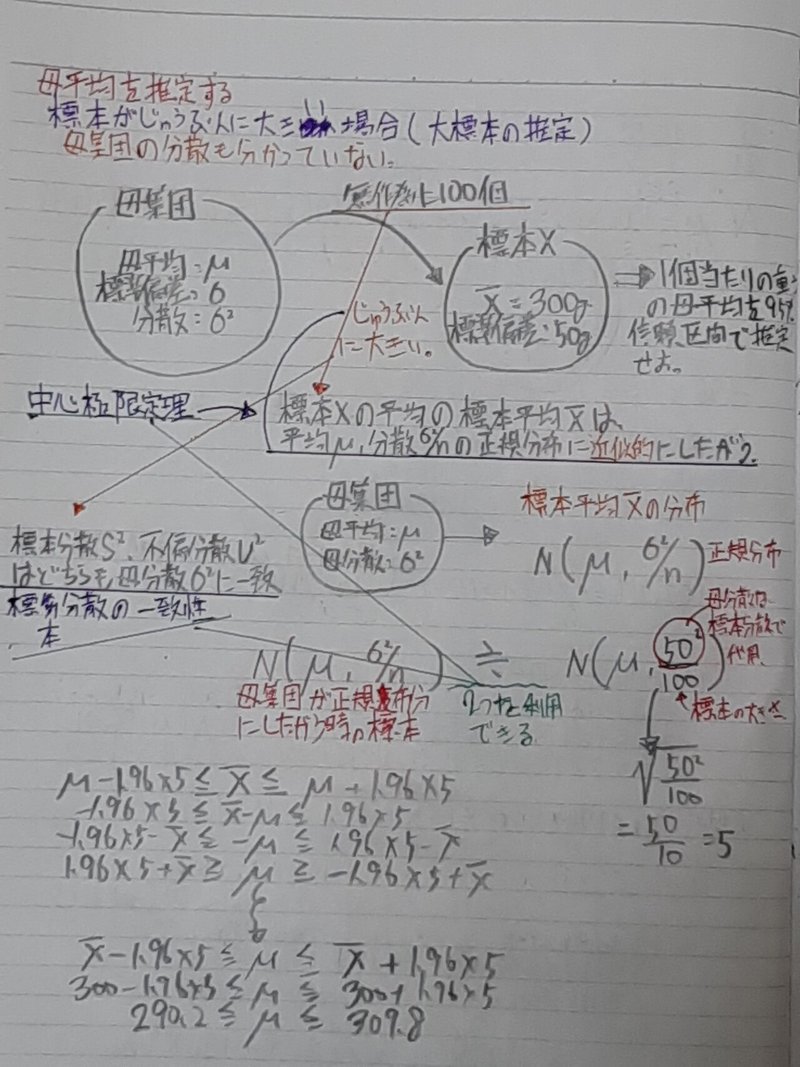 母平均を推定する
標本がじゅうぶんに大きい場合(大標本の推定)
母集団の分散も分かっていない。
母集団
母平均:μ
標準偏差:σ
分散:σ²
無作為に100個
標本X
X̄=300g
標準偏差:50g
1個当たりの重さ
の母平均を95%
信頼区間で推定
せよ。
じゅうぶん
に大きい。
中心極限定理
標本Xの平均の標本平均X̄は、
平均μ,分散σ²/nの正規分布に近似的にしたがう。
母集団
母平均:μ
母分散:σ²
標本平均X̄の分布
N(μ, σ²/n)正規分布
標本分散S²、不偏分散U²
はどちらも母分散σ²に一致
標本分散の一致性
本
N(μ, σ²/n) ≒ N(μ, 50²/100)
母分散は
標本分散で
代用
標本の大きさ
母集団が正規分布
にしたがう時の標本
2つを利用
できる
√50²/100
=50/10=5
μ-1.96×5≦X̄≦μ+1.96×5
-1.96×5≦X̄-μ≦1.96×5
-1.96×5-X̄≦-μ≦1.96×5-X̄
1.96×5+X̄≧μ≧-1.96×5+X̄
X̄-1.96×5≦μ≦X̄+1.96×5
300-1.96×5≦μ≦300+1.96×5
290.2≦μ≦309.8